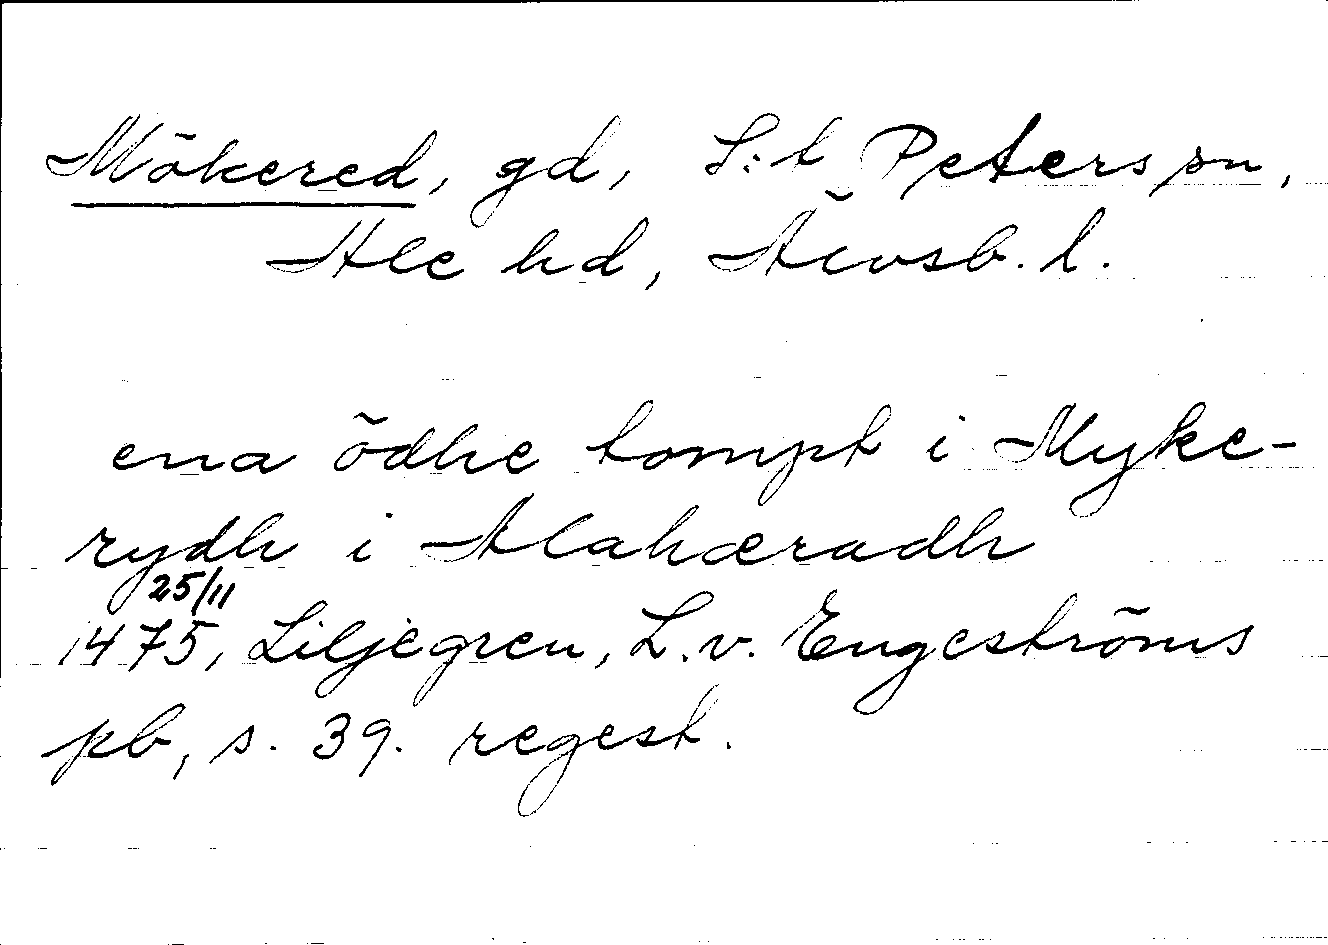 Mökered, gd, S:t Peters sn,
Ale hd, Älvsb. l.
ena ödhe tompt i Myke-
rydh i Alahæradh
25/11
1475, Liljegren, L.v. Engeströms
pb, s. 39. regest.